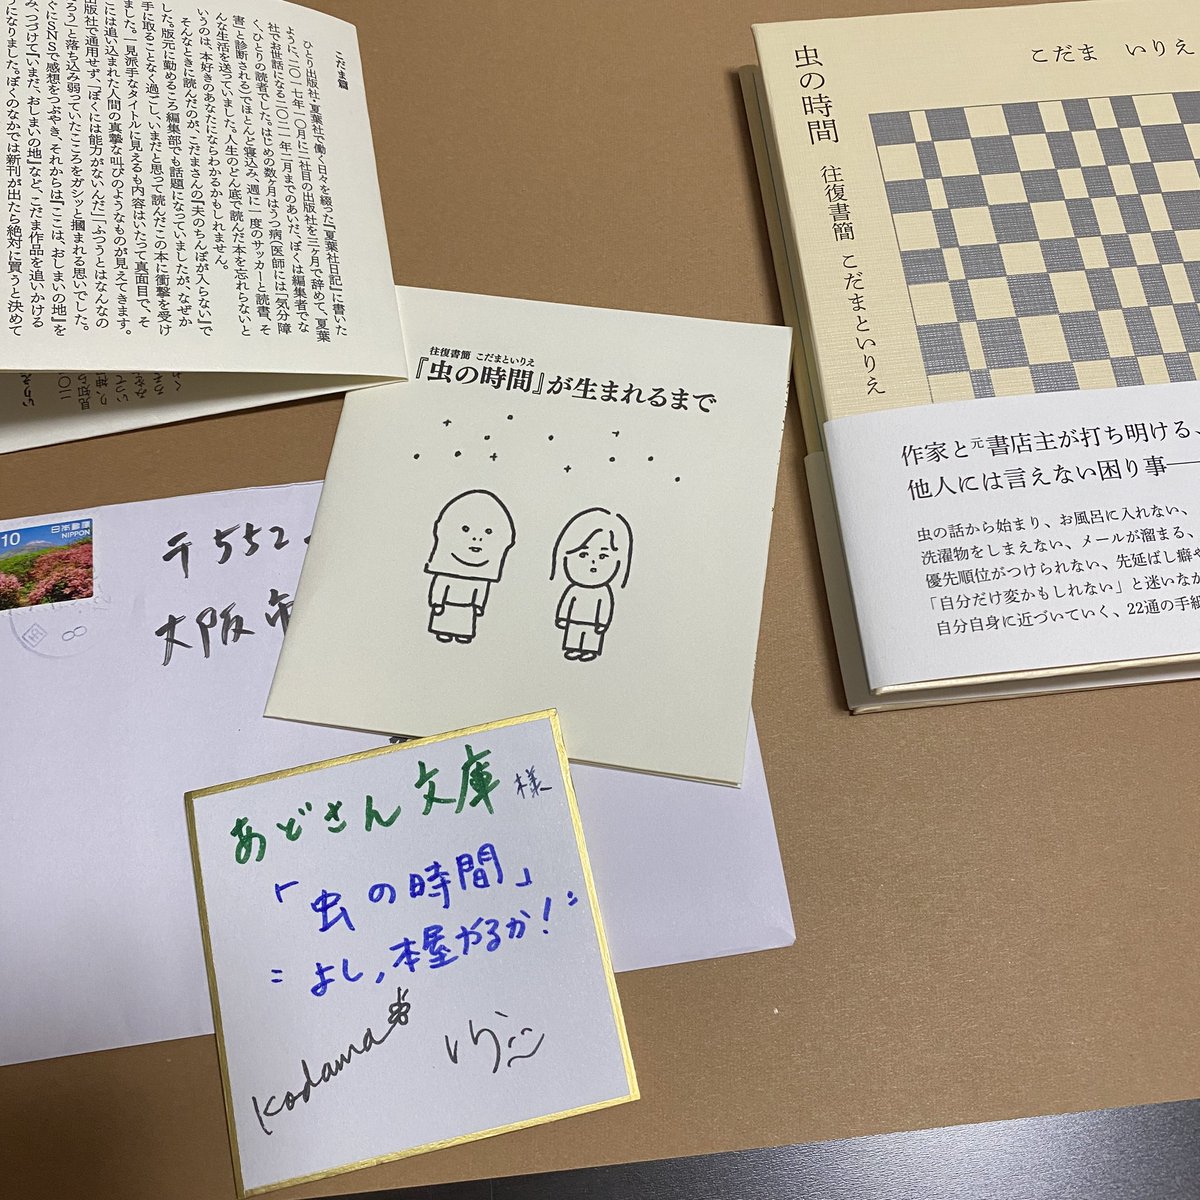 こだま篇
ひとり出版社・夏葉社で働く日々を綴った『夏葉社日記』に書いた
ように、二〇一七年一〇月に二社目の出版社を三ヶ月で辞めて、夏葉
社でお世話になる二〇二一年二月までのあいだ、ぼくは編集者でな
く、ひとりの読者でした。はじめの数ヶ月はうつ病(医師には「気分障
害」と診断される)でほとんど寝込み、週に一度のサッカーと読書、そ
んな生活を送っていました。人生のどん底で読んだ本を忘れらないと
いうのは、本好きのあなたにならわかるかもしれません。
そんなときに読んだのが、こだまさんの『夫のちんぽが入らない』で
した。版元に勤めるころ編集部でも話題になっていましたが、なぜか
手に取ることなく過ごし、いまだと思って読んだこの本に衝撃を受け
ました。一見派手なタイトルに見えるも内容はいたって真面目で、そ
こには追い込まれた人間の真摯な叫びのようなものが見えてきます。
出版社で通用せず、「ぼくには能力がないんだ」「ふつうとはなんなの
ろう」と落ち込み弱っていたこころをガシッと摑まれる思いでした。
ぐにSNSで感想をつぶやき、それからは『ここは、おしまいの地』を
み、つづけて『いまだ、おしまいの地』など、こだま作品を追いかける
うになりました。ぼくのなかでは新刊が出たら絶対に買うと決めて
いりえ
往復書簡 こだまといりえ
『虫の時間』が生まれるまで
虫の時間 往復書簡 こだまといりえ
こだま いりえ
作家と元書店主が打ち明ける、
他人には言えない困り事――
虫の話から始まり、お風呂に入れない、
洗濯物をしまえない、メールが溜まる、
優先順位がつけられない、先延ばし癖や
「自分だけ変かもしれない」と迷いなが
自分自身に近づいていく、22通の手紙
10
日本郵便
NIPPON
〒552
大阪市
あどさん文庫 様
「虫の時間」
=よし、本屋やるか!=
Kodama
いりえ